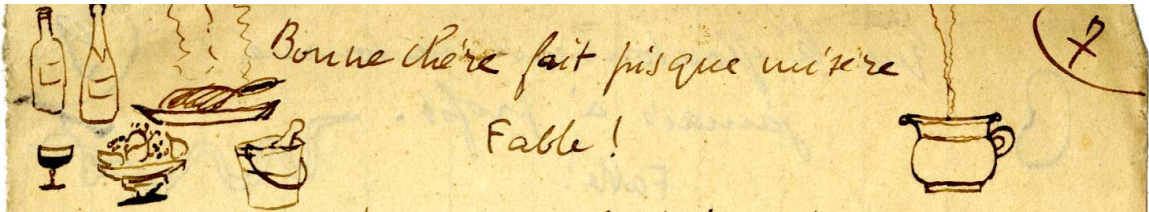 Bonne chère fait pis que misère
Fable !